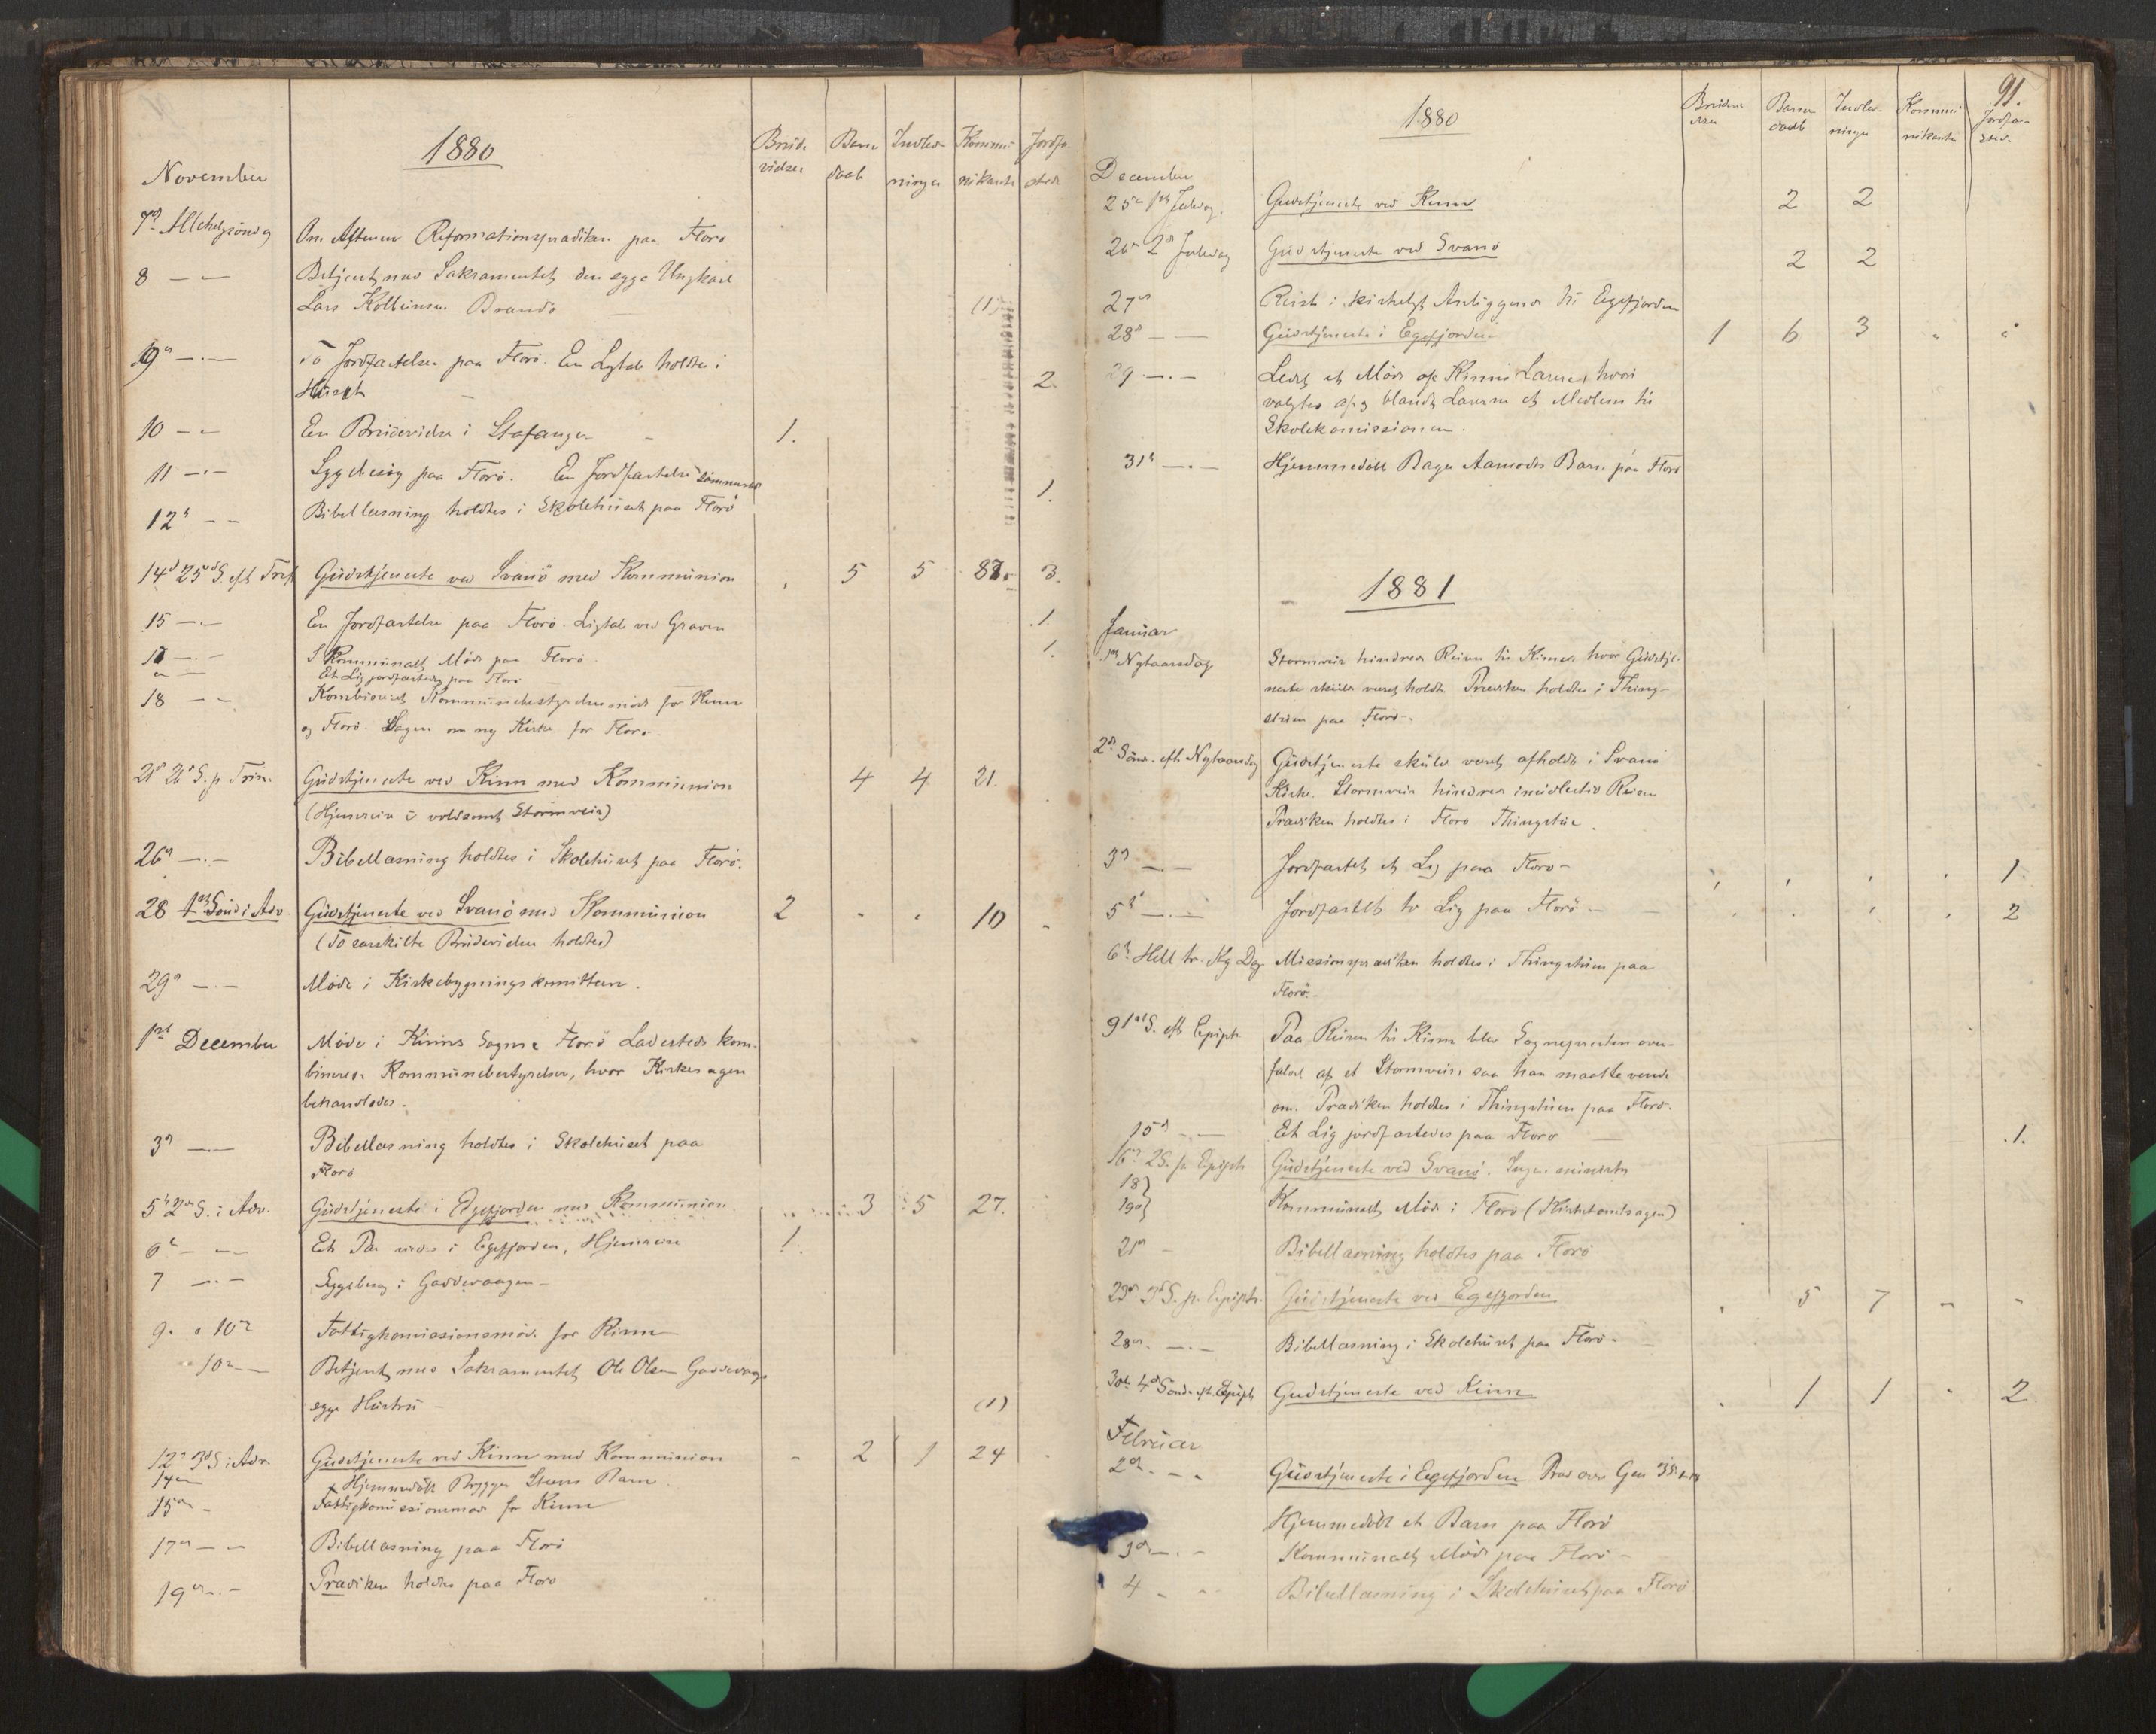 1880
November
Brude Barne Indled- Kommu- Jordfæ
vielser daab ninger nikanter
7de Allehelgensdag Om Aftenen Reformationsprædiken paa Florö
8 — — Betjent med Sakramentet den syge Ungkarl
Lars Brandö (1)
— To Jordfæstelser paa Florö. En Ligtale holdtes i
Huset 2.
10 — — En Brudevielse i Stafanger 1.
11 — — Sygebesög paa Florö. En Jordfæstelse sammesteds 1.
12 — — Bibellæsning holdtes i Skolehuset paa Florö
14de 25de S. eft Trinit Gudstjeneste ved Svanö med Kommunion 5 5 3.
15 — — En Jordfæstelse paa Florö. Ligtale ved Graven 1.
Kommunalt Möde paa Florö 1.
Et Lig jordfæstedes paa Florö
18 — — Kombineret Kommunebestyrelsesmöde for Kinn
og Florö. Sagen om ny Kirke for Florö.
21de 26de S. p. Trin. Gudstjeneste ved Kinn med Kommunion 4 4 21.
(Hjemreise i voldsomt Stormveir)
26de — — Bibellæsning holdtes i Skolehuset paa Florö.
28 1ste Sönd i Adv Gudstjeneste ved Svanö med Kommunion 2 10
(To særskilte Brudevielser holdtes)
29de — — Möde i Kirkebygningskomitteen.
1ste December Möde i Kinns Sogns & Florö Ladesteds kom-
binerede Kommunebestyrelser, hvor Kirkesagen
behandledes.
3de — — Bibellæsning holdtes i Skolehuset paa
Florö
5te 2den S. i Adv. Gudstjeneste i Eggefjorden med Kommunion 3 5 27.
6te — — Et Par viedes i Eggefjorden, Hjemreise 1.
7 — — Sygebesög i Gaddevaagen
9. 10de Fattigkomissionsmöde for Kinn
10de — Betjent med Sakramentet Ole Olsen Gaddevaags
syge Hustru (1)
12te 3die S i Adv. Gudstjeneste ved Kinn med Kommunion 2 1 24
14de — Hjemmedöbt Brygger Steens Barn
15de — Fattigkomissionsmöde for Kinn
17de — — Bibellæsning paa Florö
19de — — Prædiken holdtes paa Florö
91.
1880
Brudevi Barne Indled- Kommu- Jordfæ-
elser daab ninger nikanter sted.
December
25de 1ste Juledag. Gudstjeneste ved Kinn 2 2
26de 2den Juledag Gudstjeneste ved Svanö 2 2
27de Reiste i kirkeligt Anliggende til Eggefjorden
28de — — Gudstjeneste i Eggefjorden 1 6 3
29 — — Ledet et Möde af Kinns Lærere, hvori
valgtes af og blandt Lærerne et Medlem til
Skolekomissionen.
31te — — Hjemmedöbt Bager Aamodts Barn paa Florö
1881
Januar
1ste Nytaarsdag Stormveir hindrede Reisen til Kinn, hvor Gudstje-
neste skulde været holdt. Prædiken holdtes i Thing-
stuen paa Florö.
2den Sönd. eft. Nytaarsdag Gudstjeneste skulde været afholdt i Svanö
Kirke. Stormveir hindrede imidlertid Reisen
Prædiken holdtes i Florö Thingstue.
3die — — Jordfæstet et Lig paa Florö 1
5te — — Jordfæstet to Lig paa Florö 2
6te Hell tr. Kg Dag Missionsprædiken holdtes i Thingstuen paa
Florö.
9 1ste S. eft Epiph. Paa Reisen til Kinn blev Sognepresten over-
faldet af et Stormveir, saa han maatte vende
om. Prædiken holdtes i Thingstuen paa Florö.
15de — Et Lig jordfæstedes paa Florö 1.
16de 2 S. p. Epiph Gudstjeneste ved Svanö. Ingen ministr
18}
19de} Kommunalt Möde i Florö (Kirketomtsagen)
21de — Bibellæsning holdtes paa Florö
23de 3die S. p. Epiph. Gudstjeneste ved Eggefjorden 5 7
28de — — Bibellæsning i Skolehuset paa Florö
30te 4de Sönd. eft. Epiph Gudstjeneste ved Kinn 1 1 2
Februar
2den — — Gudstjeneste i Eggefjorden Præd over Gen
Hjemmedöbt et Barn paa Florö
3die — — Kommunalt Möde paa Florö
4 — — Bibellæsning i Skolehuset paa Florö